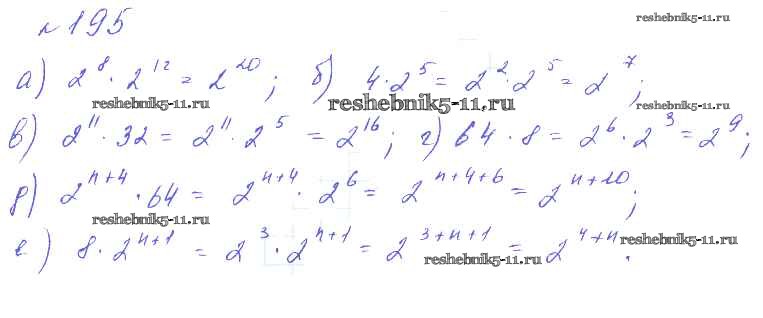 №195
reshebnik5-11.ru
а) 2⁸ · 2¹² = 2²⁰; б) 4 · 2⁵ = 2² · 2⁵ = 2⁷;
reshebnik5-11.ru reshebnik5-11.ru reshebnik5-11.ru
в) 2¹¹ · 32 = 2¹¹ · 2⁵ = 2¹⁶; г) 64 · 8 = 2⁶ · 2³ = 2⁹;
д) 2ⁿ⁺⁴ · 64 = 2ⁿ⁺⁴ · 2⁶ = 2ⁿ⁺⁴⁺⁶ = 2ⁿ⁺¹⁰;
reshebnik5-11.ru
е) 8 · 2ⁿ⁺¹ = 2³ · 2ⁿ⁺¹ = 2³⁺ⁿ⁺¹ = 2⁴⁺ⁿ.
reshebnik5-11.ru reshebnik5-11.ru